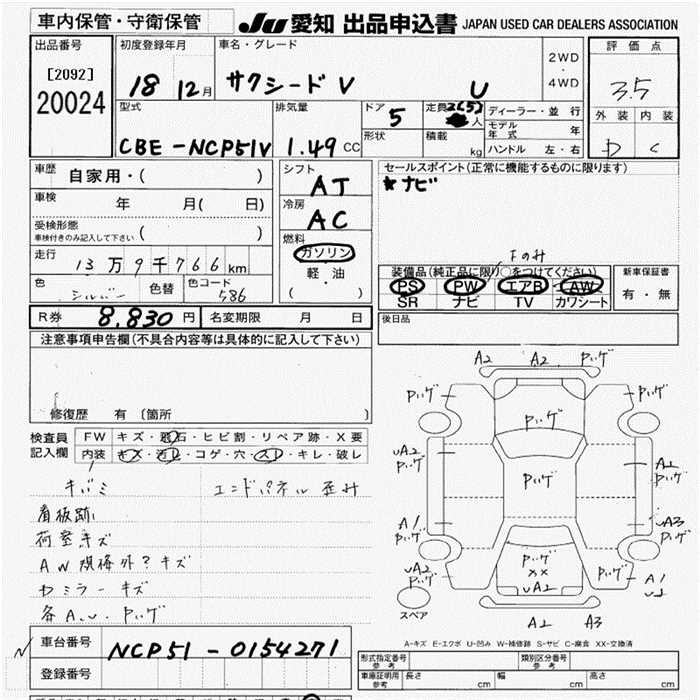 車内保管・守衛保管
JU 愛知 出品申込書 JAPAN USED CAR DEALERS ASSOCIATION
出品番号
[2092]
20024
初度登録年月
18 12月
車名・グレード
サクシードV U
2WD
・
4WD
評価点
3.5
外装 内装
D C
型式
CBE-NCP51V
排気量
1.49 CC
ドア
5
形状
定員 2(5)人
積載 kg
ディーラー・並行
モデル年式 年
ハンドル 左・右
車歴
自家用・( )
車検
年 月( 日)
受検形態
車検付きのみ記入して下さい ( )
走行
13万9千766km
色
シルバー
色替
色コード
586
シフト
AT
冷房
AC
燃料
ガソリン
軽・油
( )
セールスポイント(正常に機能するものに限ります)
★ナビ
Fのみ
装備品(純正品に限り○をつけてください)
PS PW エアB AW
SR ナビ TV カワシート
新車保証書
有・無
R券 8,830円
名変期限 月 日
後日品
注意事項申告欄(不具合内容等は具体的に記入して下さい)
修復歴 有〔箇所 〕
検査員
記入欄
FW キズ・飛石・ヒビ割・リペア跡・X要
内装 キズ・汚レ・コゲ・穴・スレ・キレ・破レ
キバミ
エンドパネル歪み
看板跡
荷室キズ
AW規格外?キズ
ワミラーキズ
各A.U.Pハゲ
A2 A2 Pハゲ
Pハゲ Pハゲ Pハゲ
UA2 Pハゲ
Pハゲ
A1 Pハゲ
A1 Pハゲ
UA3 Pハゲ
UA2 Pハゲ
Pハゲ
XX
UA2
Pハゲ
A1
スペア
A2 A3
A-キズ E-エクボ U-凹み W-補修跡 S-サビ C-腐食 XX-交換済
車台番号 NCP51-0154271
登録番号
形式指定番号 参考
類別区分番号 参考
車庫証明用 参考
長さ cm 幅 cm 高さ cm